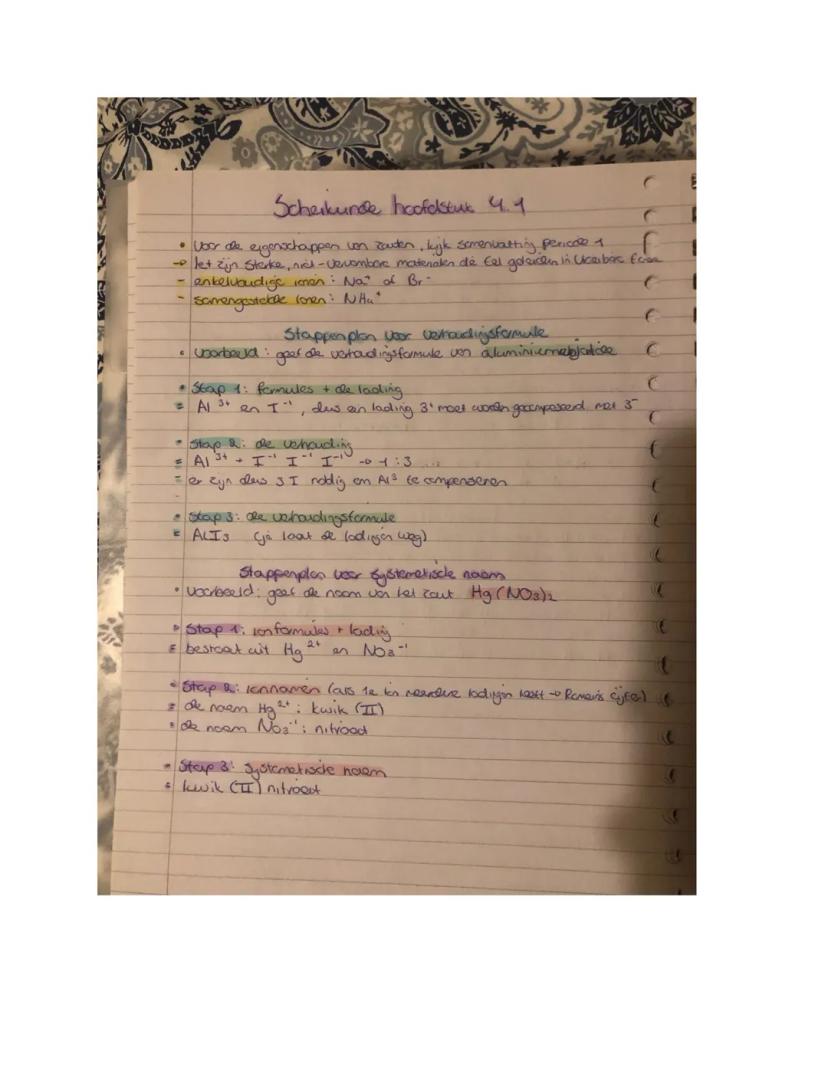 Scheikunde hoofdstuk 4.1
• Voor de eigenschappen van zouten, kijk samenvatting periode 1
→ het zijn sterke, niet-vervormbare materialen die geleiden in vloeibare fase
- enkelvoudige ionen: Na⁺ of Br⁻
- samengestelde ionen: NH₄⁺
Stappenplan voor verhoudingsformule
• voorbeeld: geef de verhoudingsformule van aluminiumjodide
• Stap 1: formules + de lading
= Al³⁺ en I⁻¹, dus een lading 3⁺ moet worden gecompenseerd met 3⁻
• Stap 2: de verhouding
= Al³⁺ + I⁻¹ I⁻¹ I⁻¹ → 1:3 ...
= er zijn dus 3 I nodig om Al³ te compenseren
-
• Stap 3: de verhoudingsformule
= AlI₃ (je laat de ladingen weg)
Stappenplan voor systematische naam
• voorbeeld: geef de naam van het zout Hg(NO₃)₂
• Stap 1: ionformules + lading
= bestaat uit Hg²⁺ en NO₃⁻¹
• Stap 2: ionnamen (als 1e ion meerdere ladingen heeft → Romeins cijfer)
= de naam Hg²⁺: kwik (II)
• de naam NO₃⁻¹: nitraat
• Stap 3: Systematische naam
= kwik (II) nitraat